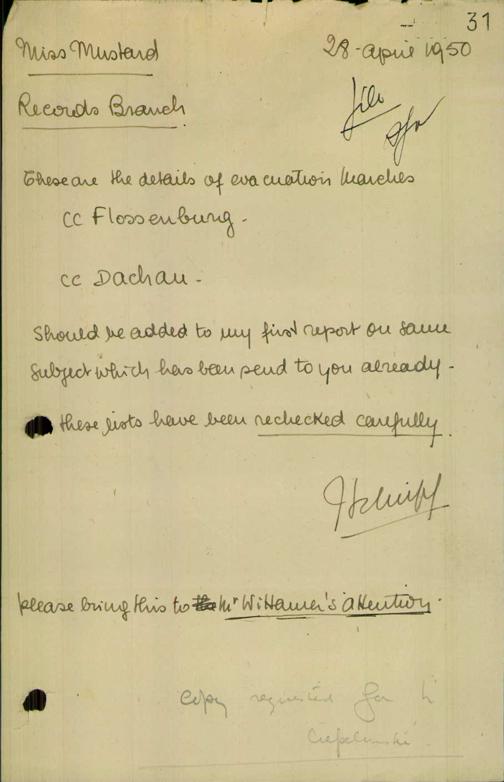 31
Miss Mustard
28-april 1950
Records Branch
file
These are the details of evacuation marches
CC Flossenburg.
CC Dachau.
Should be added to my first report on same
subject which has been send to you already-
these lists have been rechecked carefully.
please bring this to Mr Wittamer's attention.
copy requested for